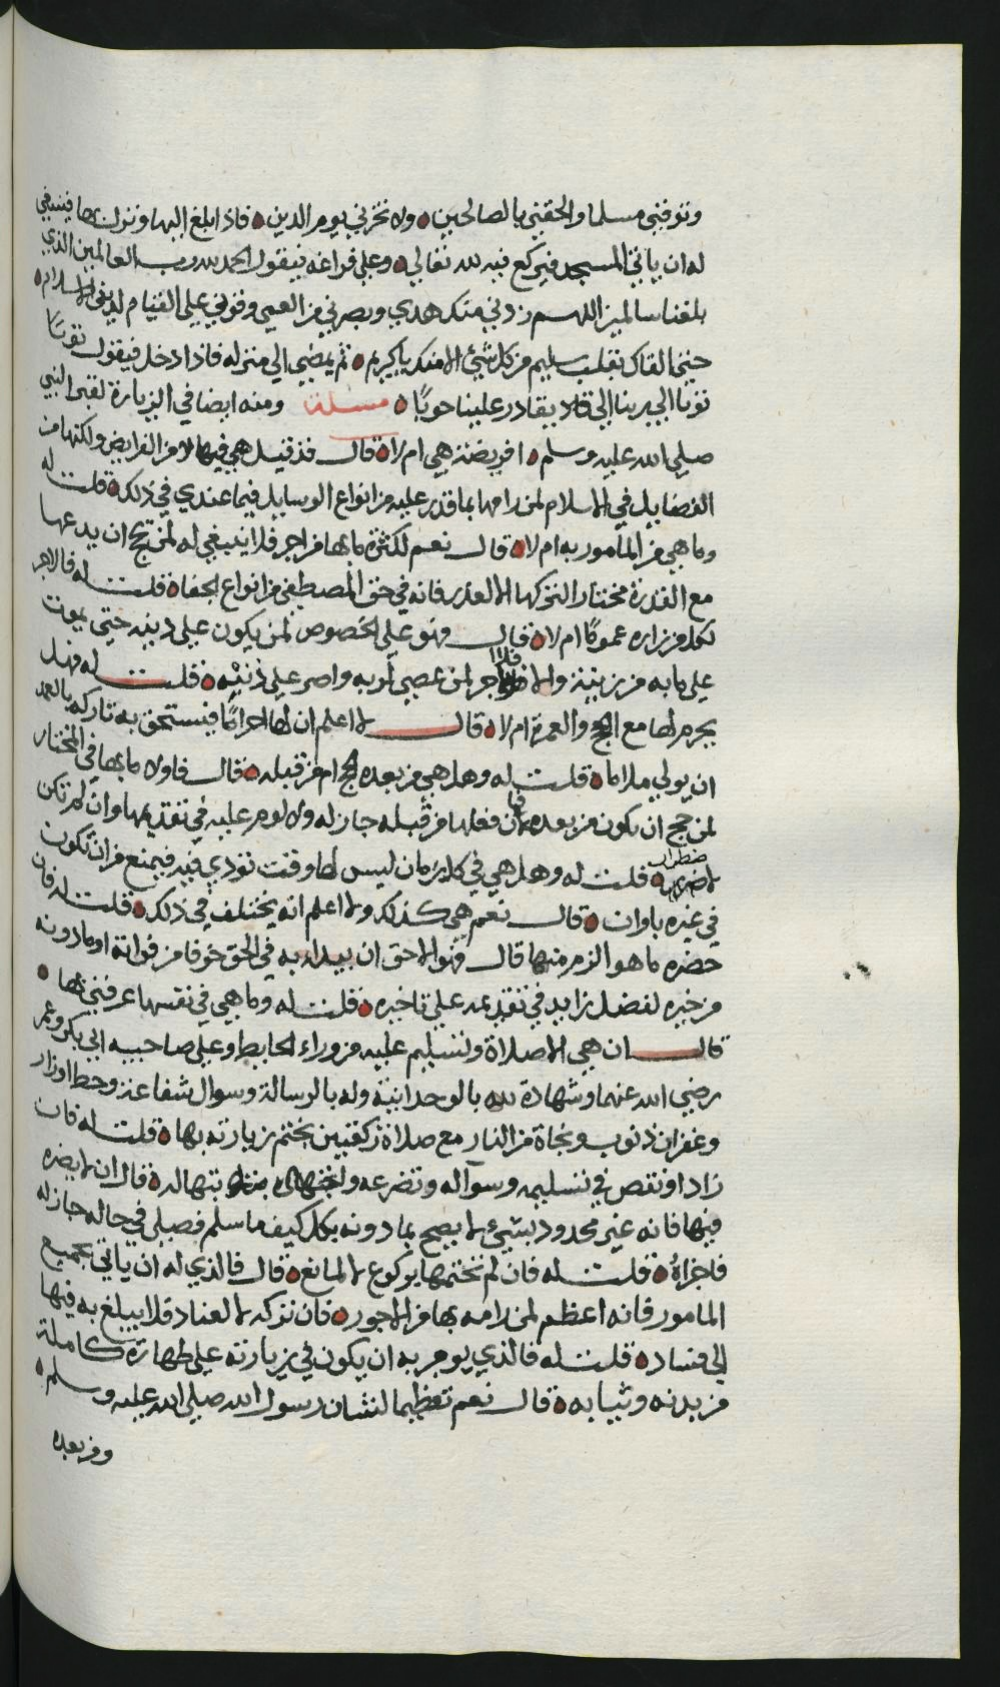 وتوفني مسلما والحقني بالصالحين ولا تخزني يوم الدين فاذا بلغ اليها ونزل بها فينبغي
له ان ياتي المسجد فيركع فيه لله تعالى وعلى فراغه فيقول الحمد لله رب العالمين الذي
بلغنا سالمين اللهم زدني منك هدي وبصرني من العمى وقوني على القيام لديني الاسلام
حتى القاك بقلب سليم من كل شيئ الا منك يا كريم ثم يمضي الى منزله فاذا دخل فيقول توبًا
توبا الى ربنا الى قادر يقادر علينا حوبًا مسئلة ومنه ايضا في الزيارة لقبر النبي
صلى الله عليه وسلم افريضة هي ام لا قال قد قيل هي فيها لا من الفرايض ولكنها من
الفضايل في الاسلام لمن رامها بما قدر عليه من انواع الوسايل فيما عندي في ذلك قلت له
وما هي من المامور به ام لا قال نعم لكثرة ما بها من اجر فلا ينبغي له لمن حج ان يدعها
مع القدرة مختار التركها الا لعذر فانه في حق المصطفى من انواع الجفاة قلت له فالاجر
لكل من زاره عمومًا ام لا قال فهو على الخصوص لمن يكون على دينه حتى يموت
على ما به من زينة والا فلا اجر لمن عصى لربه واصر على ذنبه قلت له فهل
يحرم لها مع الحج والعمرة ام لا قال لا اعلم ان لها احرامًا فيستحق به تاركه بالعمد
ان يولي ملاما قلت له وهل هي من بعده لحج ام من قبله قال فاولا ما بها في المختار
لمن حج ان يكون من بعده فان فعلها من قبله جاز له ولا لوم عليه في تقديمها وان لم تكن
لاضطراب قلت له وهل هي في كل زمان ليس لها وقت تؤدي فيه فيمنع من ان تكون
في غيره باوان قال نعم هي كذلك ولا اعلم انه يختلف في ذلك قلت له فان
حضره ما هو الزم منها قال فهو الاحق ان يبداء به في الحق خوفا من فواته او ما دونه
من خيره لفضل زايد في تقديمه على تاخيره قلت له وما هي في نفسها عرفني بها
قال ان هي الا صلاة وتسليم عليه من وراء الحايط وعلى صاحبيه ابي بكر وعمر
رضي الله عنهما وشهادة لله بالوحدانية وله بالرسالة وسوال شفاعة وحط اوزار
وغفران ذنوب ونجاة من النار مع صلاة ركعتين يختم زيارته بها قلت له فان
زاد او نقص في تسليمه وسواله وتضرعه وابتهاله قال ان لا يضره
فيها فانه غير محدود بشيئ لا يصح بما دونه بكل كيف ما سلم فصلى في حاله جاز له
فاجزاهُ قلت له فان لم نختمها بركوع لا لمانع قال فالذي له ان ياتي بجميع
المامور فانه اعظم لمن رامه بها من الاجور فان تركه لا لعناد فلا يبلغ به فيها
الى فساد قلت له فالذي يومر به ان يكون في زيارته على طهارة كاملة
من بدنه وثيابه قال نعم تعظيما لشان رسول الله صلى الله عليه وسلم
ومن بعده